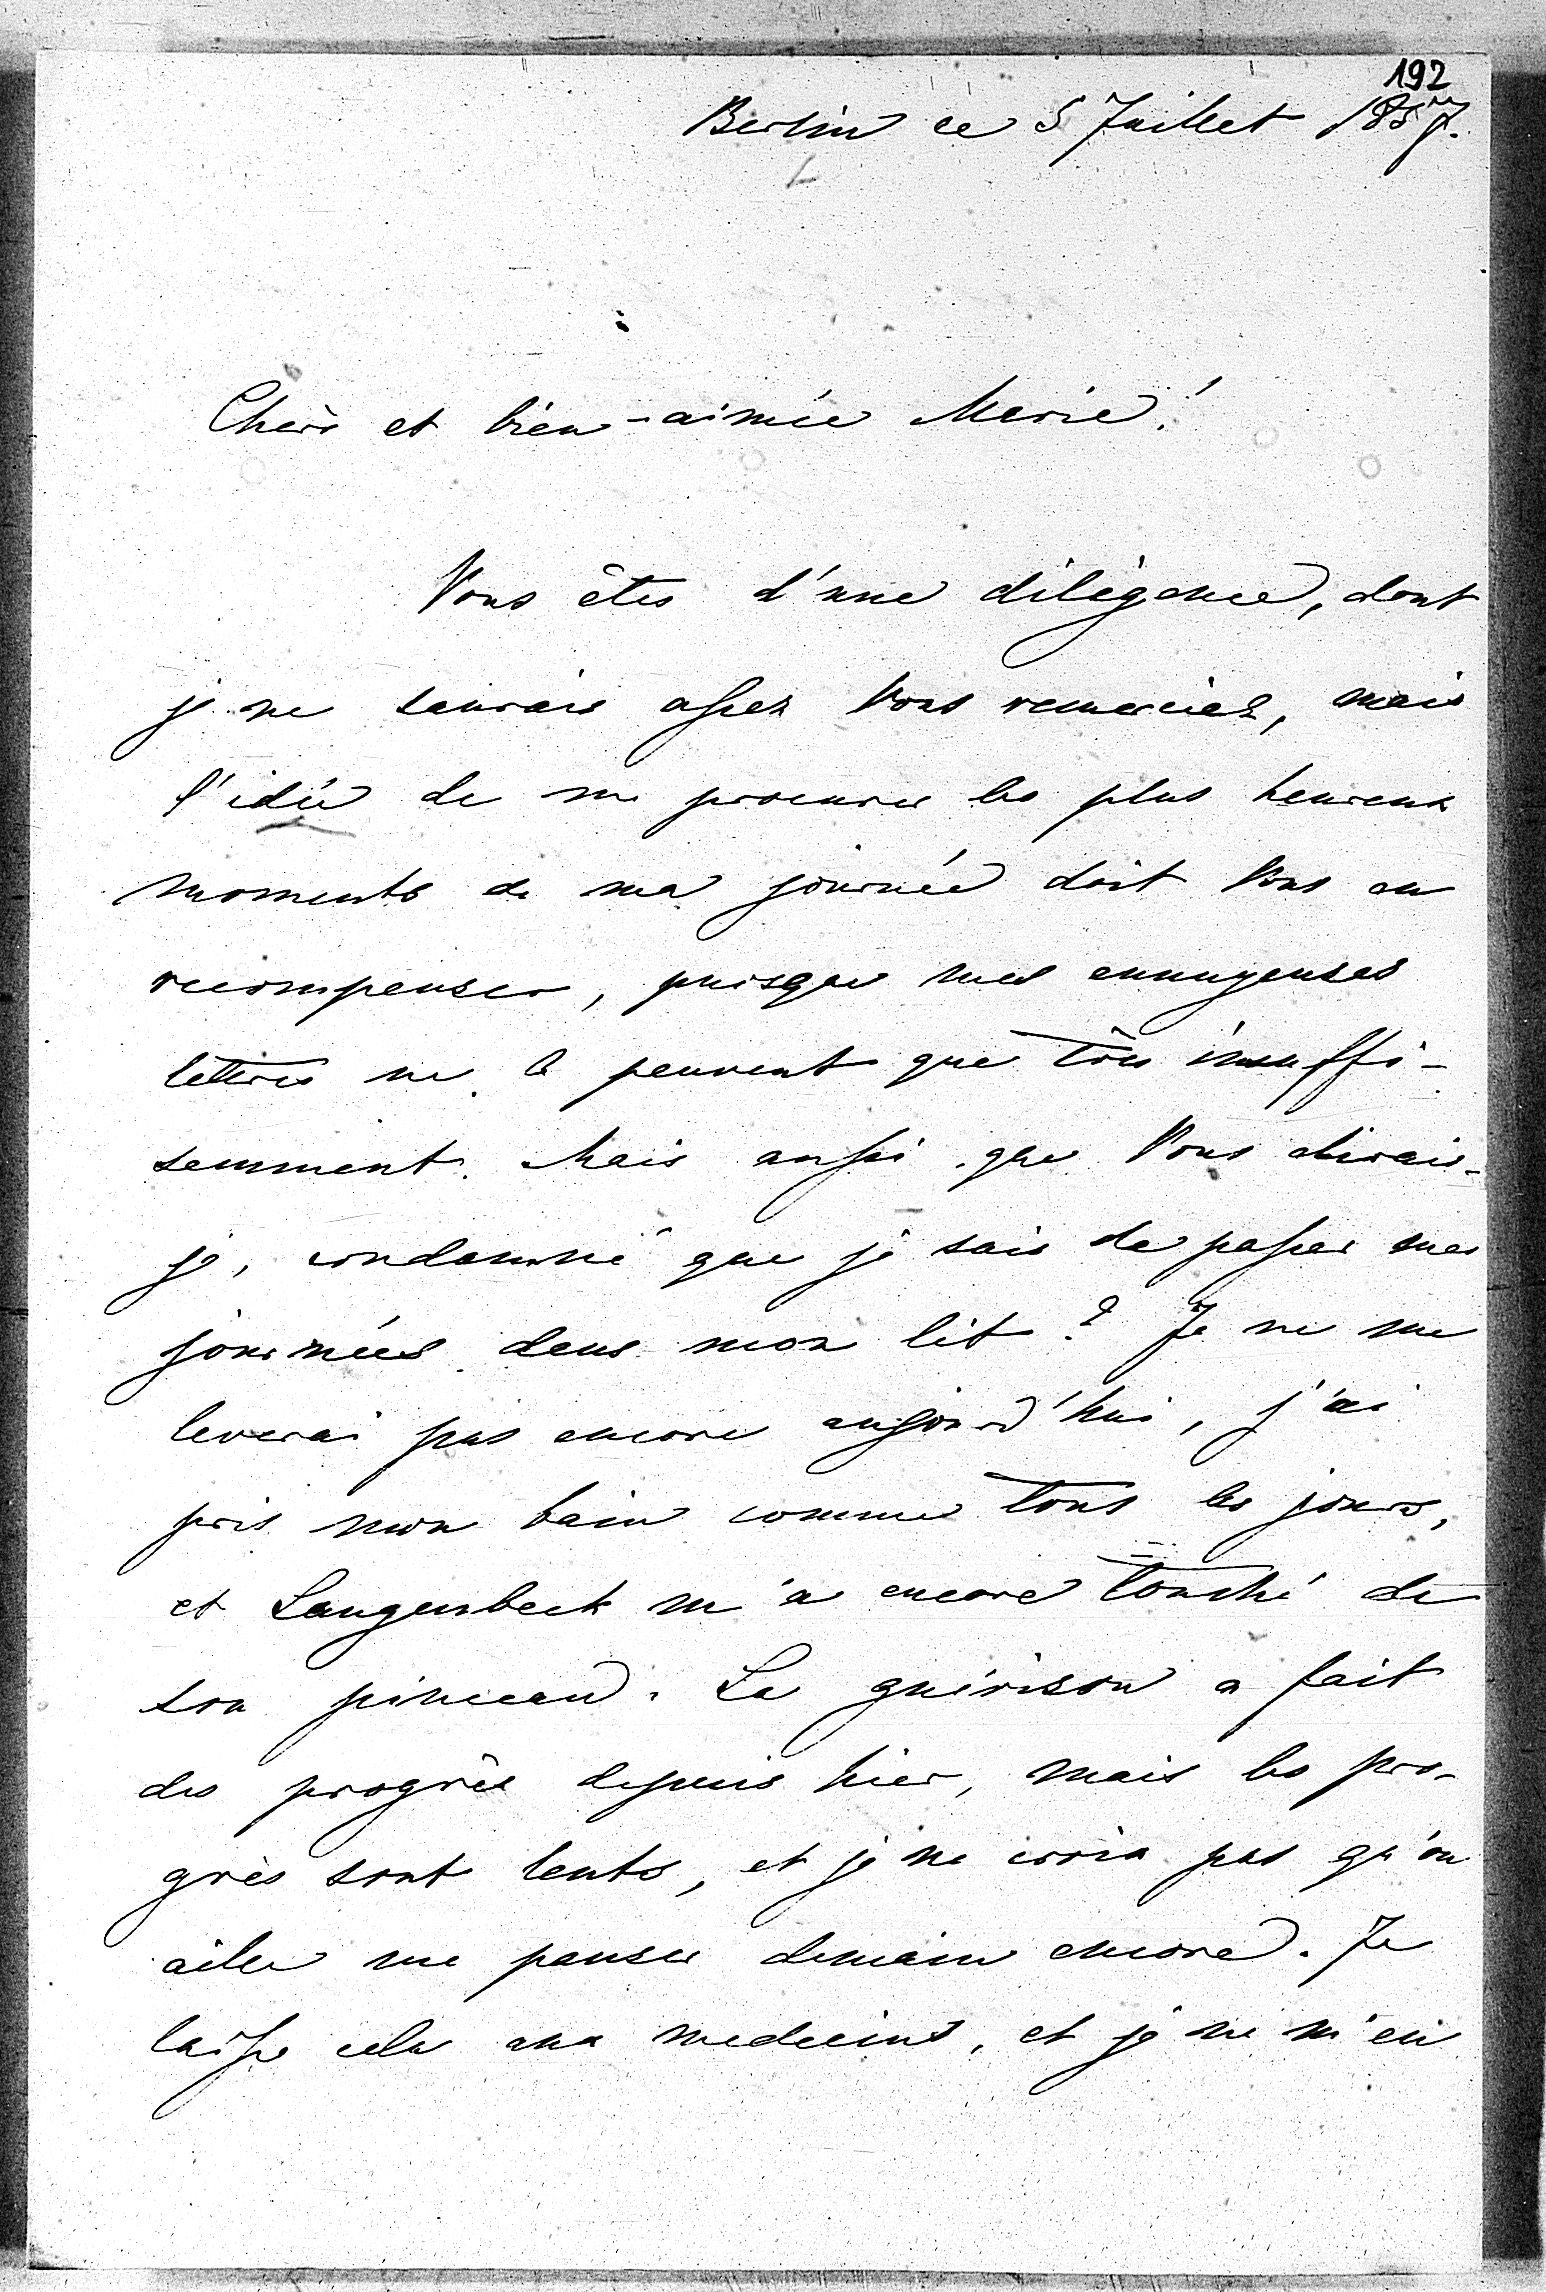 192
Berlin ce 5 Juillet 1857.
Chère et bien-aimée Marie!
Vous êtes d'une diligence, dont
je ne saurais assez Vous remercier, mais
l'idée de me procurer les plus heureux
moments de ma journée doit Vous en
recompenser, puisque mes ennuyeuses
lettres ne le peuvent que très insuffi-
samment. Mais aussi que Vous dirais-
je, condamné que je suis de passer mes
journées dans mon lit? Je ne me
leverai pas encore aujourd'hui, j'ai
pris mon bain comme tous les jours,
et Langenbeck m'a encore touché de
son pinceau. La guérison a fait
des progrès depuis hier, mais les pro-
grès sont lents, et je ne crois pas qu'on
aille me panser demain encore. Je
laisse cela aux medecins, et je ne m'en